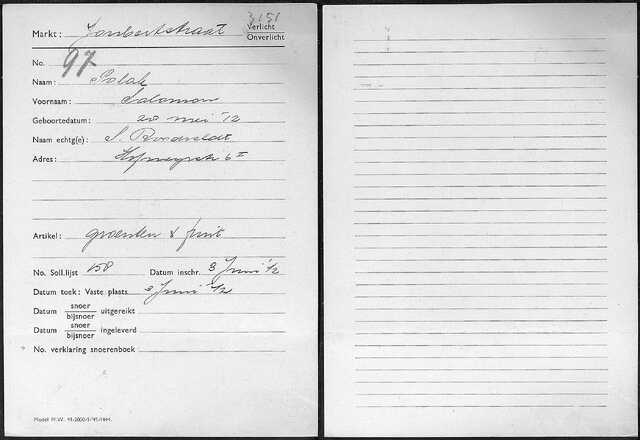 3151
Markt: Joubertstraat Verlicht
Onverlicht
No. 97
Naam: Polak
Voornaam: Salomon
Geboortedatum: 20 mei '12
Naam echtg(e): S. Roodveldt
Adres: Hofmeyrstr 6 II
Artikel: groenten & fruit
No. Soll.lijst 158 Datum inschr. 3 Juni '42
Datum toek: Vaste plaats 3 Juni '42
Datum snoer
bijsnoer uitgereikt
Datum snoer
bijsnoer ingeleverd
No. verklaring snoerenboek
Model M.W.